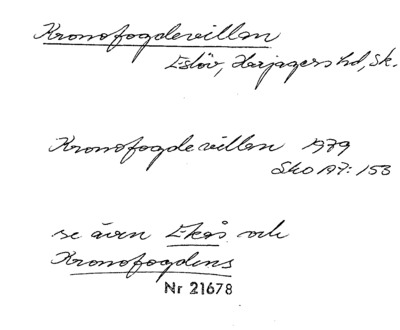 Kronofogdevillan
Eslöv, Harjagers hd, Sk.
Kronofogdevillan 1979
Sko A7: 153
se även Ekås och
Kronofogdens
Nr 21678